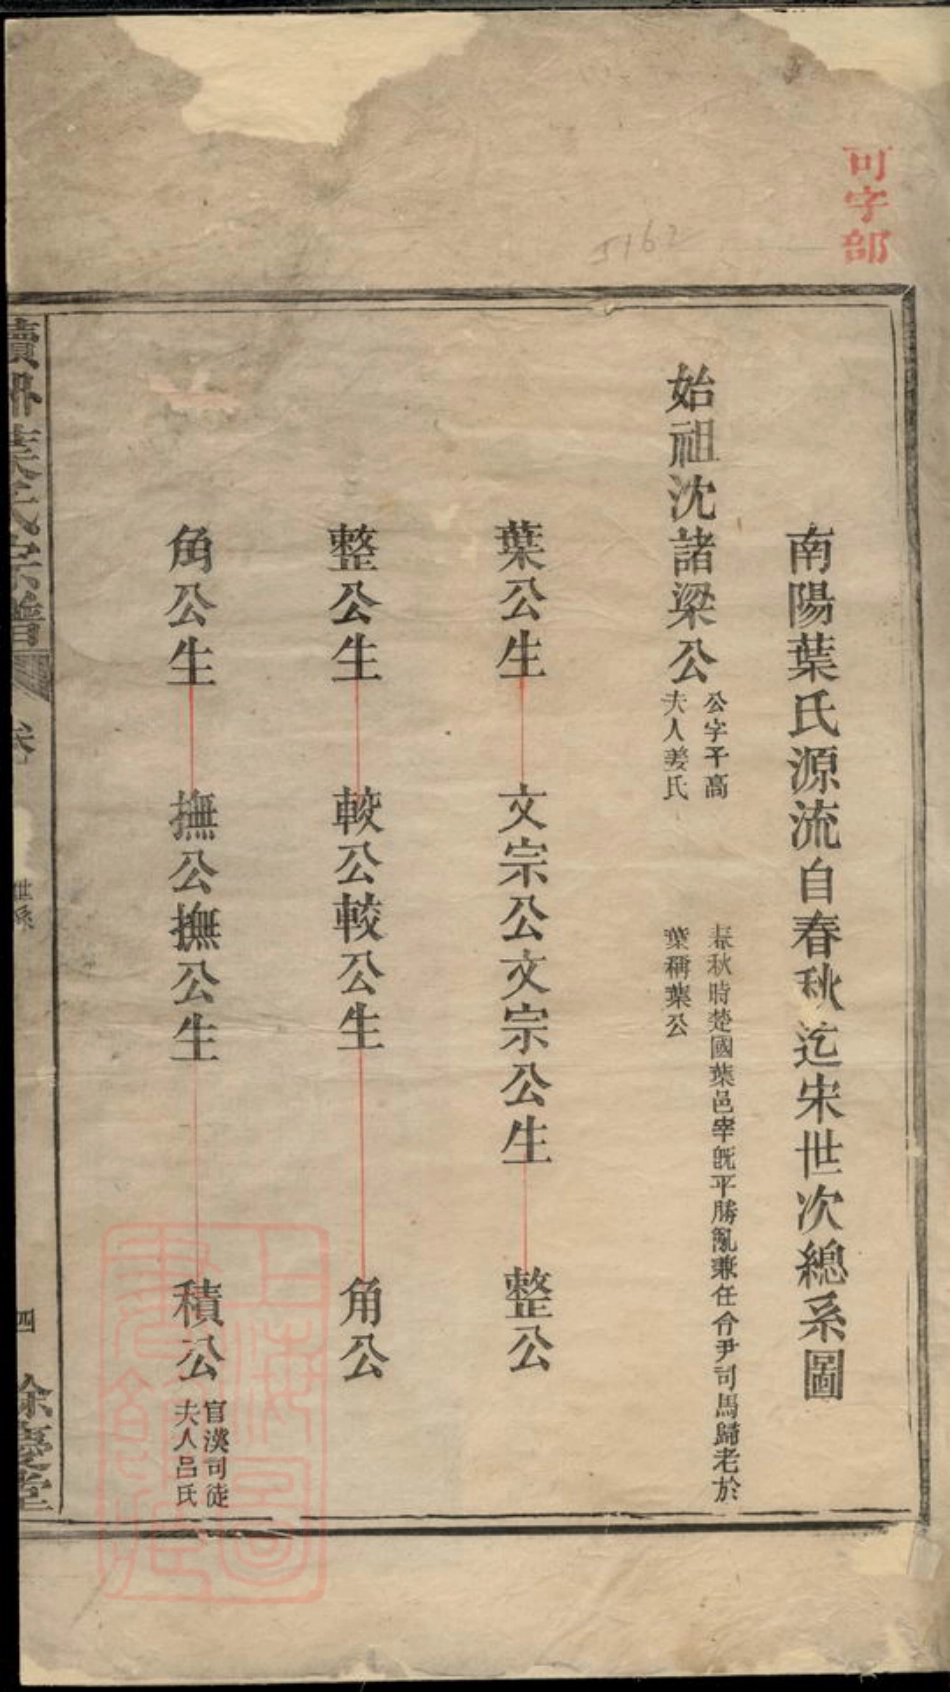 可字部
5162
南陽葉氏源流自春秋迄宋世次總系圖
始祖沈諸梁公
公字子高
夫人姜氏
春秋時楚國葉邑宰旣平勝亂兼任令尹司馬歸老於
葉稱葉公
葉公生 文宗公文宗公生 整公
整公生 較公較公生 角公
角公生 撫公撫公生 積公
官漢司徒
夫人呂氏
葉氏宗譜
卷
世系
四
餘慶堂
上海圖書館藏